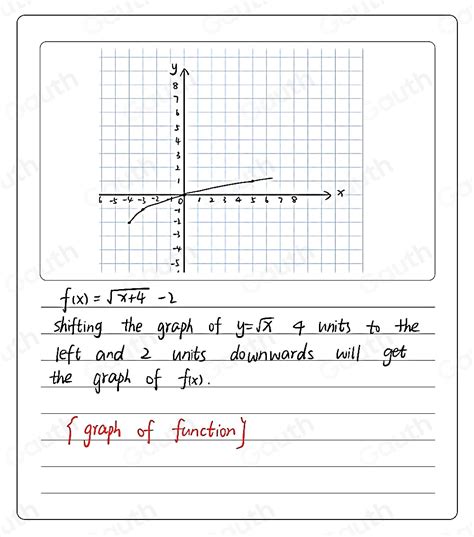 y
8
7
6
5
4
3
2
1
6 -5 -4 -3 -2 -1 0 1 2 3 4 5 6 7 8 x
-1
-2
-3
-4
-5
f(x) = √x+4 -2
shifting the graph of y=√x 4 units to the
left and 2 units downwards will get
the graph of f(x).
{graph of function}
Gauth